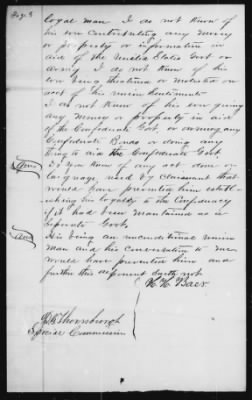 Page 3
loyal man I do not know of
his ever contributing any money
or property or information in
aid of the United States Govt or
army. I do not know of his
ever being threatened or molested on
acct of his union sentiments
I do not know of his ever giving
any money or property in aid
of the Confederate Govt, or owning any
Confederate Bonds or doing any
thing to aid the Confederate Govt.
Do you know of any act done or
language used by claimant that
would have prevented him establ-
ishing his loyalty to the Confederacy
if it had been maintained as a
seperate Govt,
His being an unconditional union
man and his conversation to me
would have prevented him and
further this deponent sayth not
H. H. Baer
Thornburgh
Special Commissioner